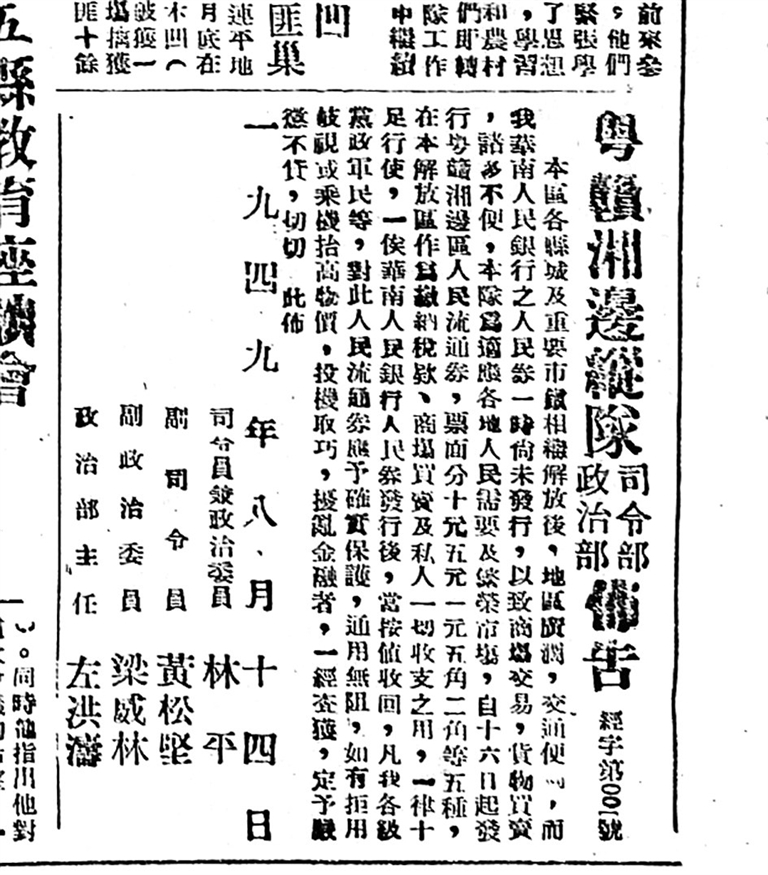 前來參
，他們
緊張學
了思想
，學習
和農村
們即轉
隊工作
中繼續
凹
匪巢
連平地
月底在
木凹（
破獲一
場擒獲
匪十餘
粤贛湘邊縱隊司令部政治部佈告 經字第001號
本區各縣城及重要市鎮相繼解放後，地區廣濶，交通便利，而
我華南人民銀行之人民券一時尚未發行，以致商場交易，貨物買賣
，諸多不便，本隊爲適應各地人民需要及繁榮市場，自十六日起發
行粤贛湘邊區人民流通券，票面分十元五元一元五角二角等五種，
在本解放區作爲繳納稅欵、商場買賣及私人一切收支之用，一律十
足行使，一俟華南人民銀行人民券發行後，當按值收回，凡我各級
黨政軍民等，對此人民流通券應予確實保護，通用無阻，如有拒用
歧視或乘機抬高物價，投機取巧，擾亂金融者，一經查獲，定予嚴
懲不貸，切切 此佈
一九四九年八、月十四日
司令員兼政治委員 林平
副司令員 黃松堅
副政治委員 梁威林
政治部主任 左洪濤
五縣教育座談會
。同時他指出他對